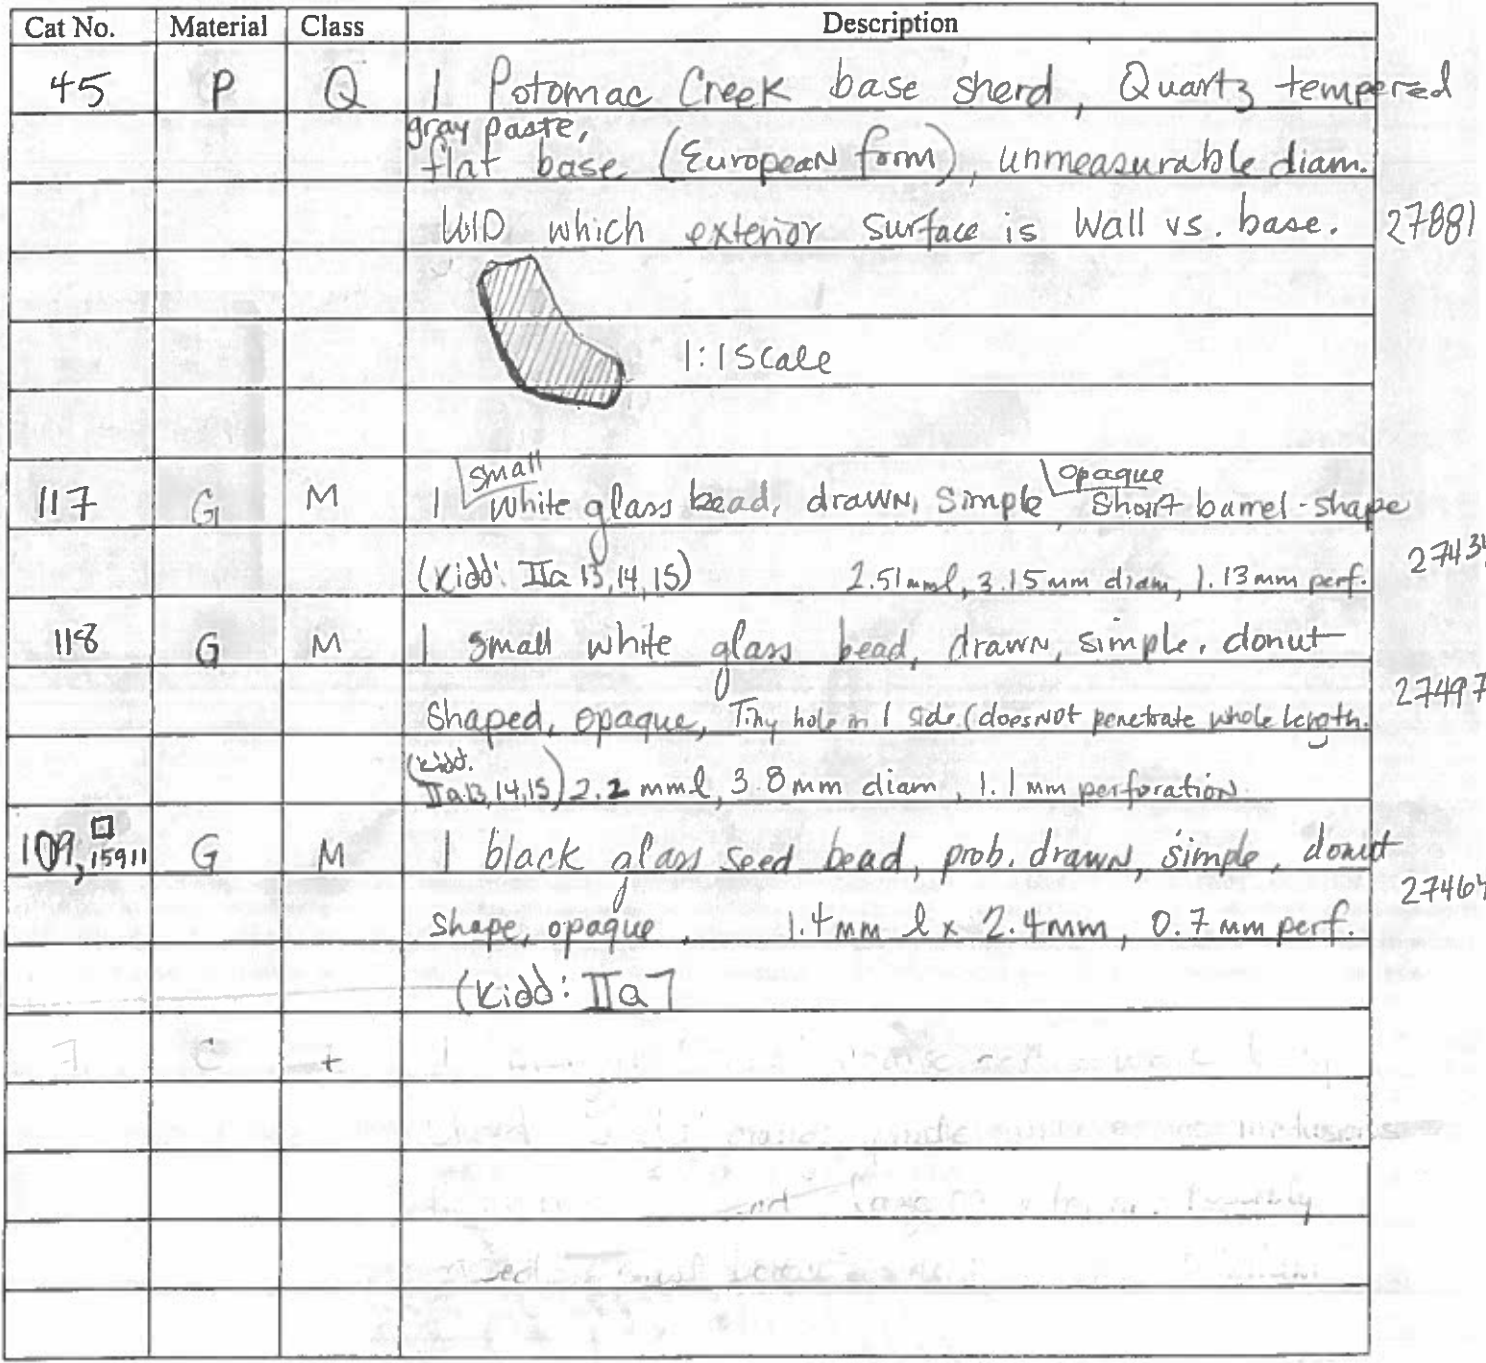 Cat No. Material Class Description
45 P Q 1 Potomac Creek base sherd, Quartz tempered
gray paste,
flat base (European form), unmeasurable diam.
UID which exterior surface is wall vs. base. 27881
1:1 Scale
small opaque
117 G M 1 white glass bead, drawn, simple, Short barrel-shape
(Kidd: IIa 13, 14, 15) 2.51 mm l, 3.15 mm diam, 1.13 mm perf.
118 G M 1 small white glass bead, drawn, simple, donut
27497
shaped, opaque, Tiny hole in 1 side (does NOT penetrate whole length.
(Kidd.
IIa13, 14, 15) 2.2 mm l, 3.8 mm diam, 1.1 mm perforation.
109, 15911 G M 1 black glass seed bead, prob. drawn, simple, donut
shape, opaque, 1.4 mm l x 2.4 mm, 0.7 mm perf.
(Kidd: IIa7